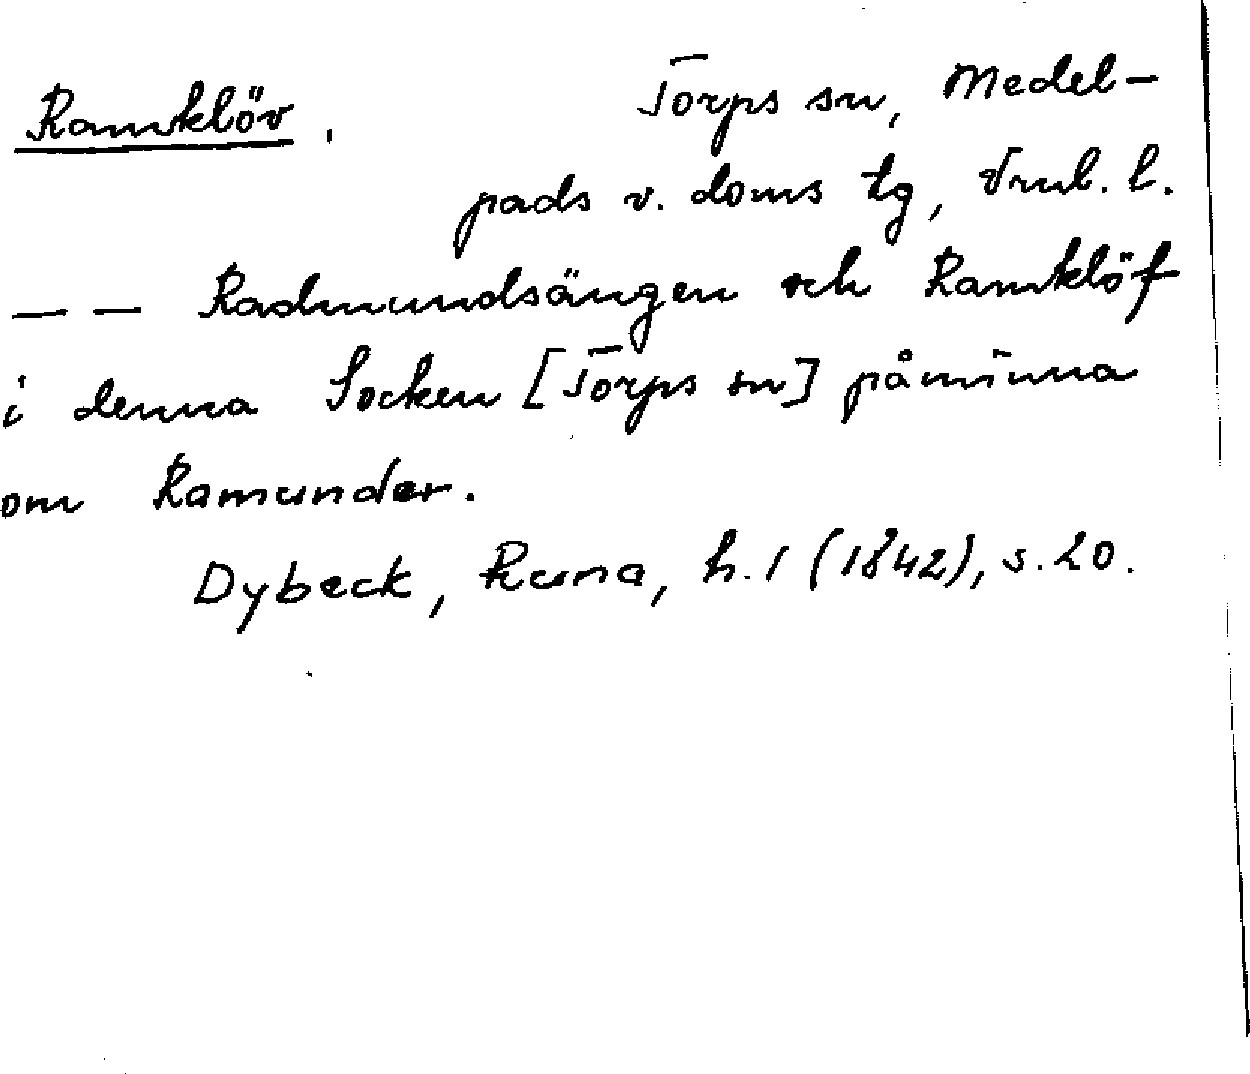 Ramklöv. Torps sn, Medel-
pads v. doms tg, Vrnl. l.
— — Radmundsängen och Ramklöf
i denna Socken [Torps sn] påminna
om Ramunder.
Dybeck, Runa, h. 1 (1842), s. 20.